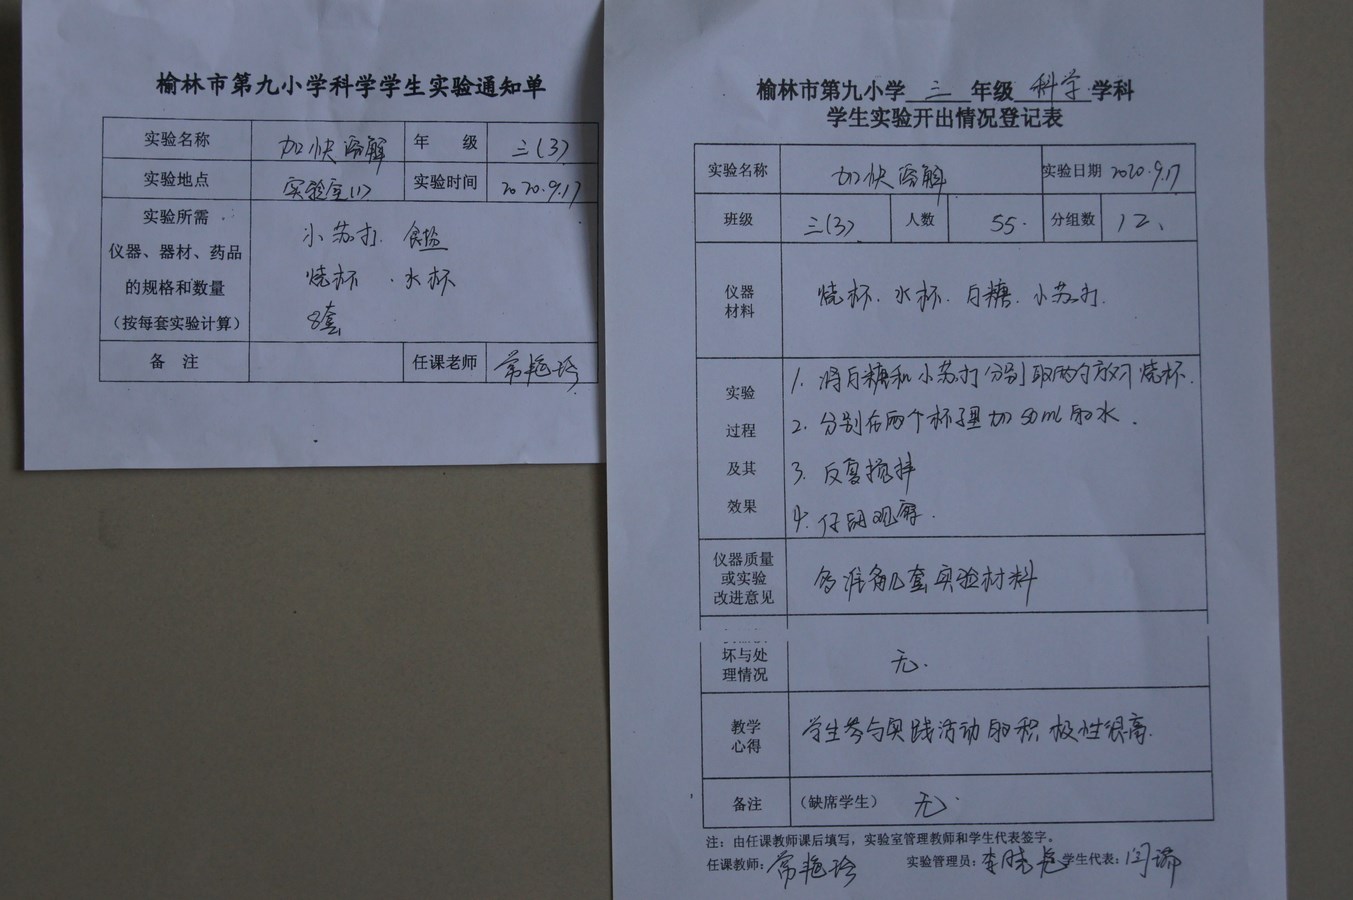 榆林市第九小学科学学生实验通知单
实验名称 加快溶解 年 级 三(3)
实验地点 实验室(1) 实验时间 2020.9.17
实验所需
仪器、器材、药品
的规格和数量
(按每套实验计算)
小苏打 食盐
烧杯 . 水杯
8套
备 注 任课老师 常艳玲
榆林市第九小学 三 年级 科学 学科
学生实验开出情况登记表
实验名称 加快溶解 实验日期 2020.9.17
班级 三(3) 人数 55. 分组数 12、
仪器
材料
烧杯. 水杯. 白糖. 小苏打.
实验
过程
及其
效果
1. 将白糖和小苏打分别取两勺放入烧杯.
2. 分别在两个杯子里加50ml的水.
3. 反复搅拌
4. 仔细观察.
仪器质量
或实验
改进意见
多准备几套实验材料
坏与处
理情况
无.
教学
心得
学生参与实践活动的积极性很高.
备注 (缺席学生) 无.
注:由任课教师课后填写,实验室管理教师和学生代表签字。
任课教师:常艳玲 实验管理员: 学生代表: